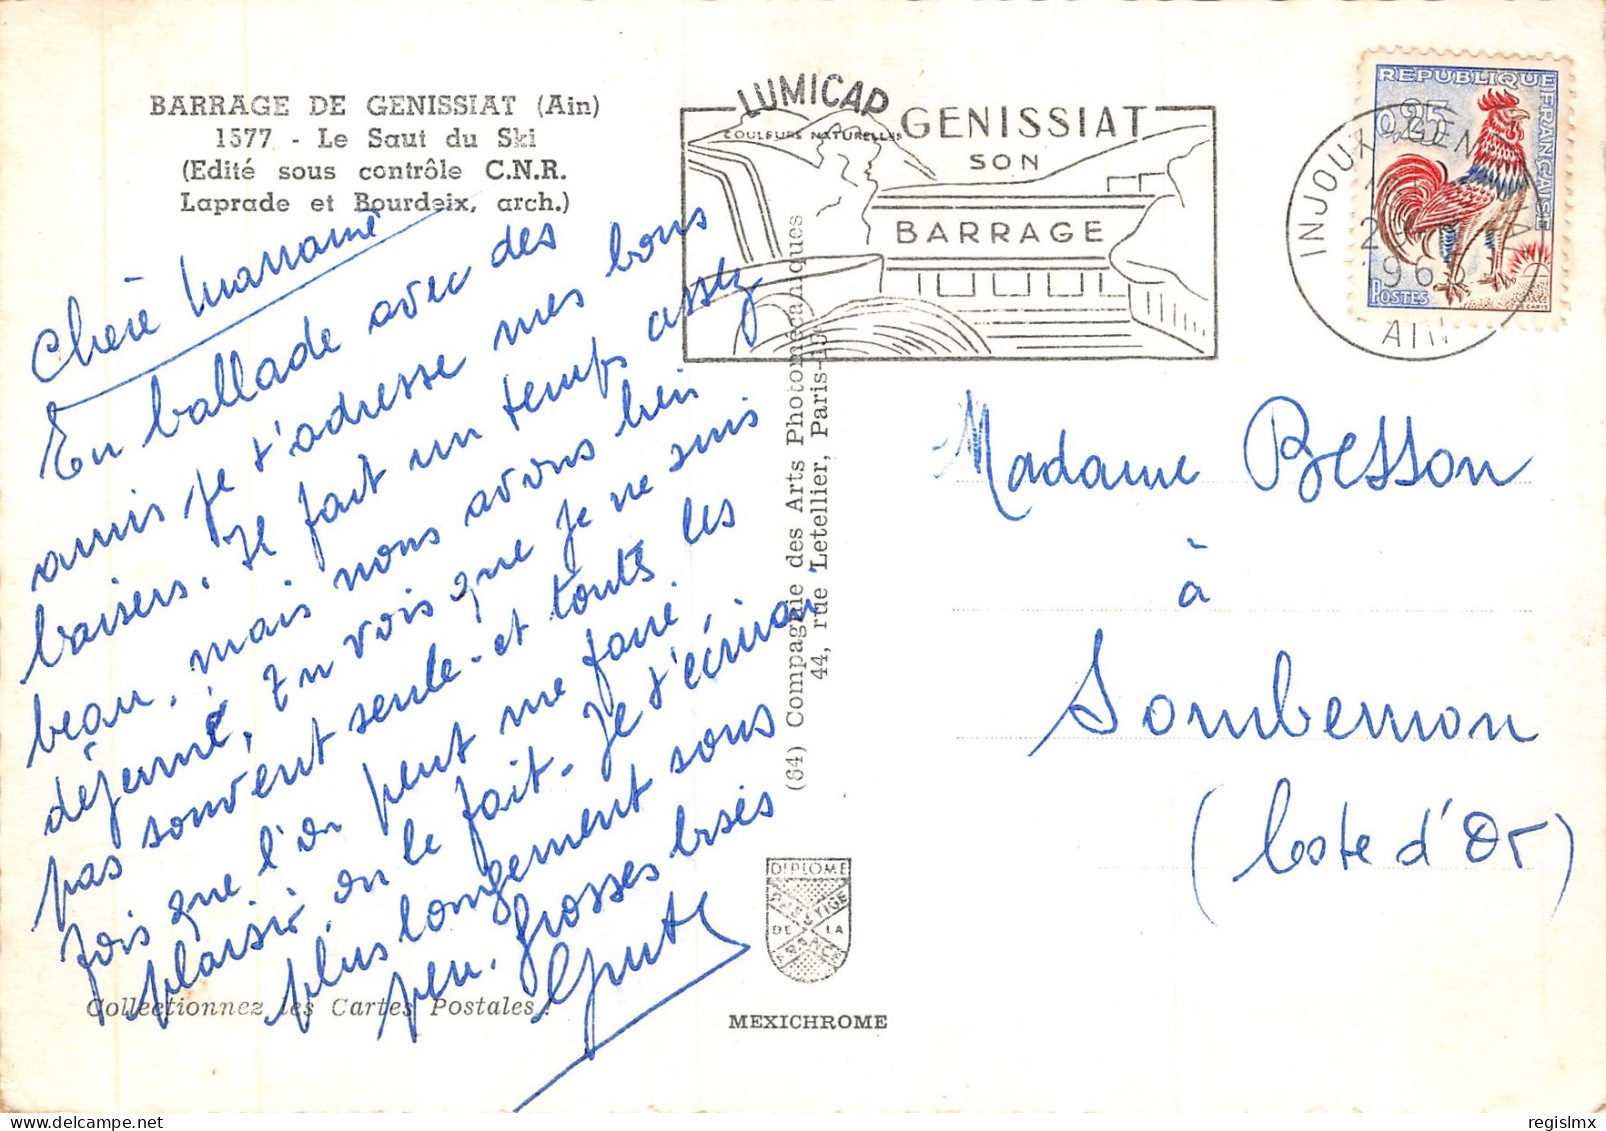 BARRAGE DE GENISSIAT (Ain)
1577 - Le Saut du Ski
(Edité sous contrôle C.N.R.
Laprade et Bourdeix, arch.)
Chère Marraine
En ballade avec des
amis je t'adresse mes bons
baisers. Il fait un temps assez
beau, mais nous avons bien
déjeuné. Tu vois que je ne suis
pas souvent seule - et toutes les
fois que l'on peut me faire
plaisir on le fait. Je t'écrirai
plus longement sous
peu. Grosses bises
Collectionnez les Cartes Postales !
LUMICAP
COULEURS NATURELLES
GENISSIAT
SON
BARRAGE
(64) Compagnie des Arts Photomécaniques
44, rue Letellier, Paris-15
DIPLOME
PRESTIGE
DE LA
FRANCE
MEXICHROME
REPUBLIQUE FRANÇAISE
0,25
POSTES
INJOUX-GENISSIAT
196
AIN
Madame Besson
à
Sombernon
(Côte d'Or)
regislmx